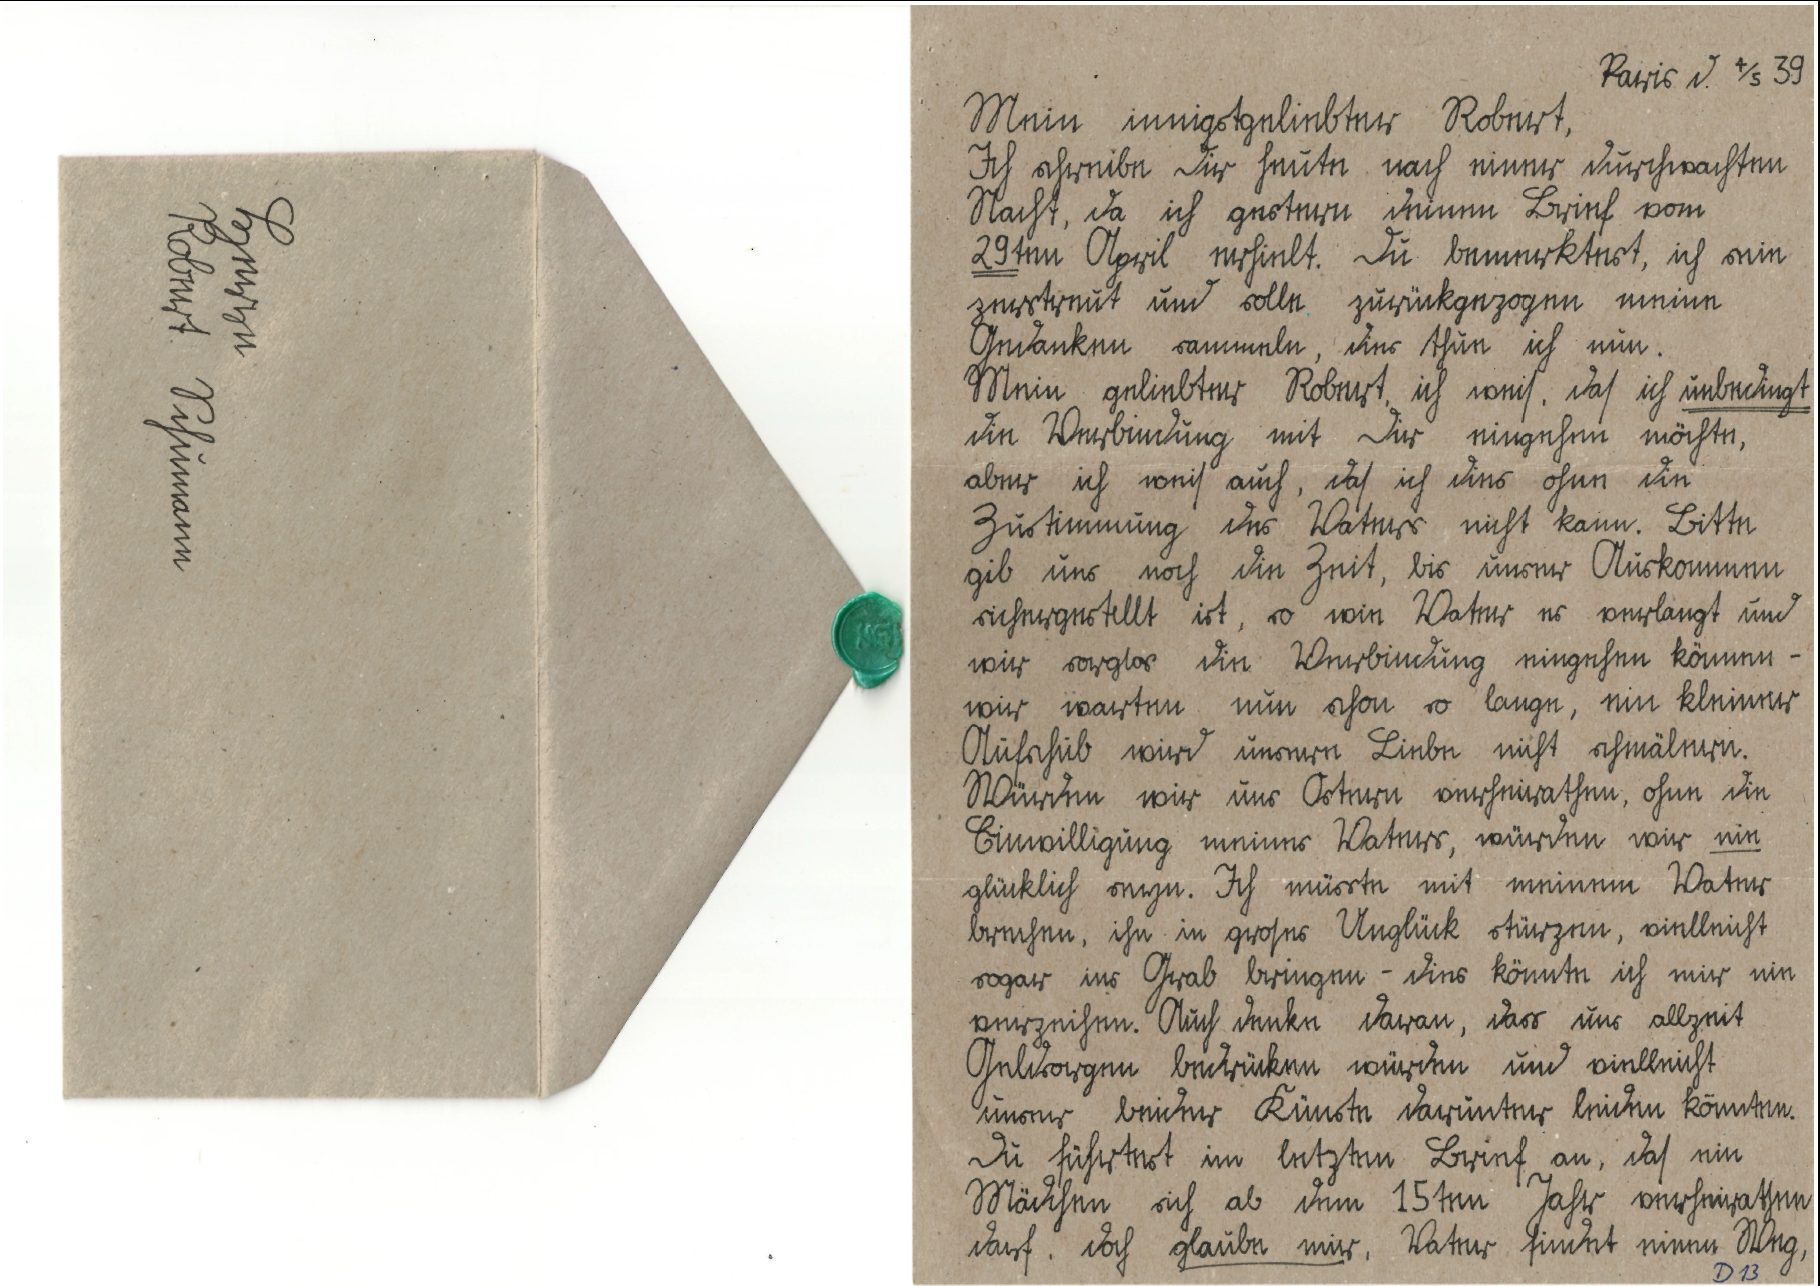 Herrn
Robert Schumann
Paris d. 4/5 39
Mein innigstgeliebter Robert,
Ich schreibe Dir heute nach einer durchwachten
Nacht, da ich gestern deinen Brief vom
29ten April erhielt. Du bemerktest, ich sein
zerstreut und solle zurückgezogen meine
Gedanken sammeln, dies thue ich nun.
Mein geliebter Robert, ich weiß, daß ich unbedingt
die Verbindung mit Dir eingehen möchte,
aber ich weiß auch, daß ich dies ohne die
Zustimmung des Vaters nicht kann. Bitte
gib uns noch die Zeit, bis unser Auskommen
sichergestellt ist, so wie Vater es verlangt und
wir sorglos die Verbindung eingehen können -
wir warten nun schon so lange, ein kleiner
Aufschub wird unsere Liebe nicht schmälern.
Würden wir uns Ostern verheirathen, ohne die
Einwilligung meines Vaters, würden wir nie
glücklich seyn. Ich müsste mit meinem Vater
brechen, ihn in großes Unglück stürzen, vielleicht
sogar ins Grab bringen - dies könnte ich mir nie
verzeihen. Auch denke daran, dass uns allzeit
Geldsorgen bedrücken würden und vielleicht
unser beider Künste darunter leiden könnten.
Du führtest im letzten Brief an, daß ein
Mädchen sich ab dem 15ten Jahr verheirathen
darf, doch glaube mir, Vater findet einen Weg,
D 13